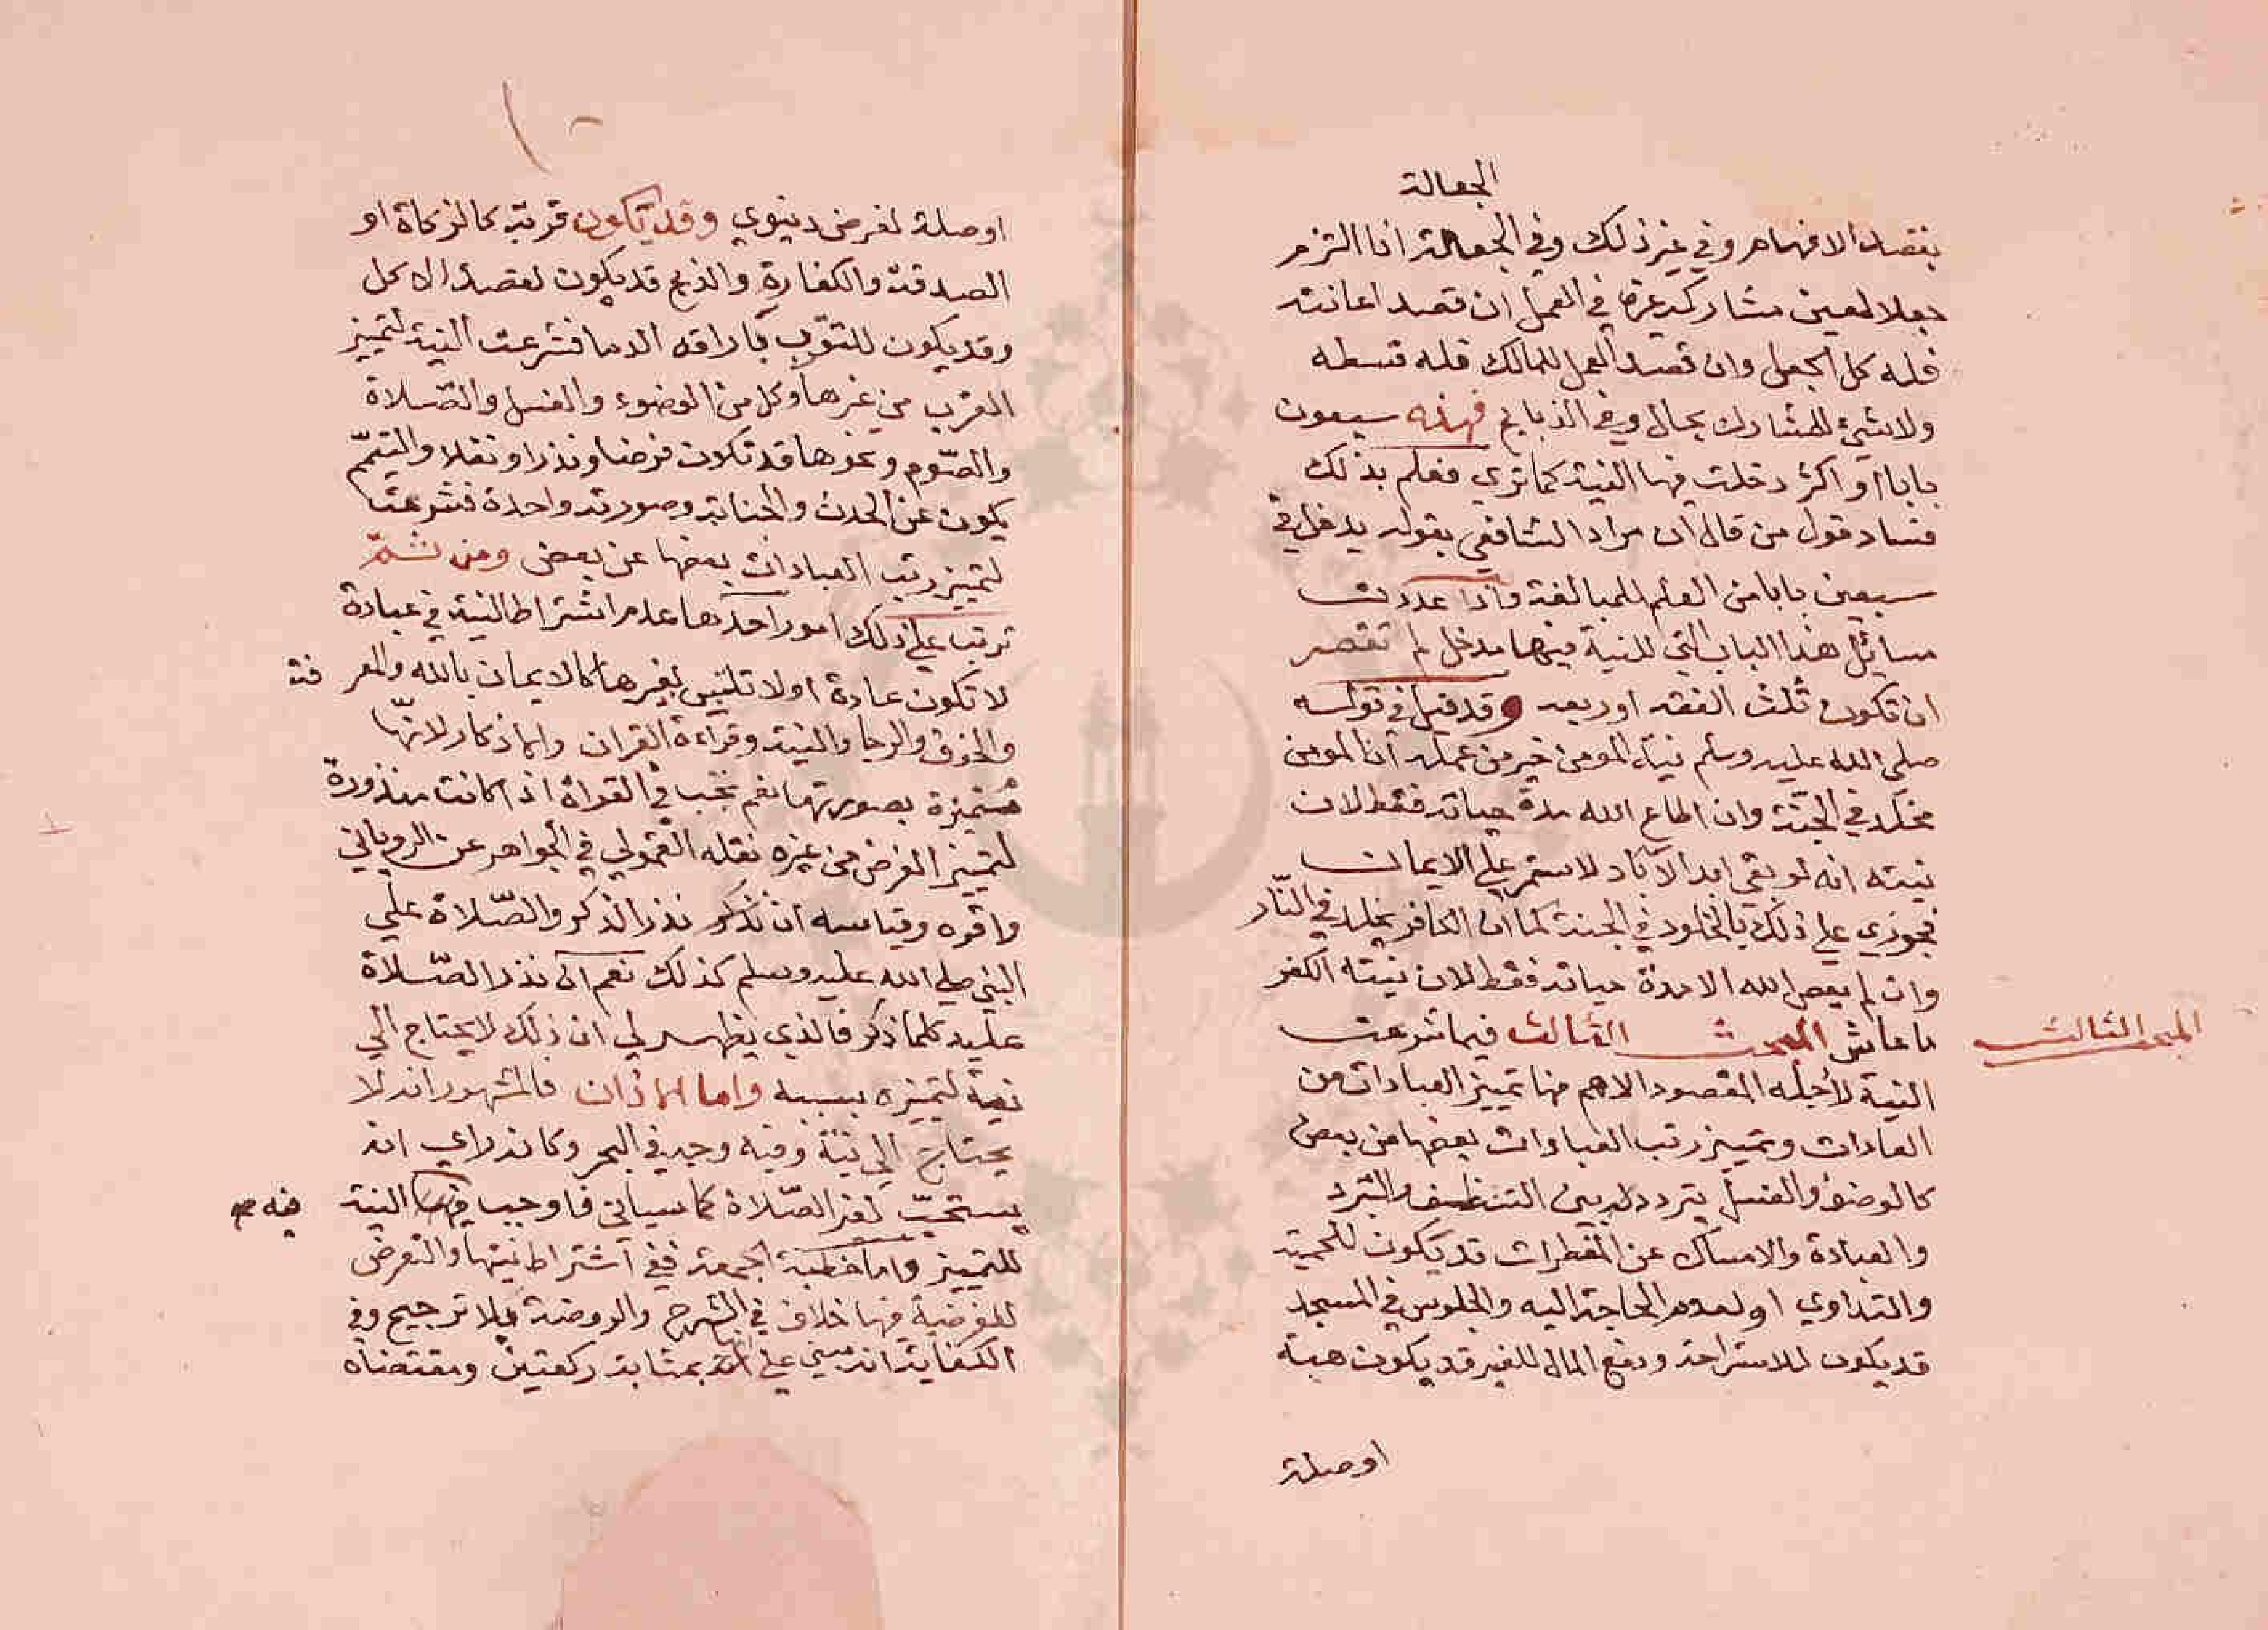 الجعالة
بقصد الافهام وفي غير ذلك وفي الجعالة اذا التزم
جعلا لمعين فشاركه غيره في العمل ان قصد اعانته
فله كل الجعل وان قصد العمل للمالك فله قسطه
ولا شيئ للمشارك بحال وفي الذبايح فهذه سبعون
بابا او اكثر دخلت فيها النية كما تري فعلم بذلك
فساد قول من قال ان مراد الشافعي بقوله يدخل في
سبعين بابا من العلم للمبالغة واذا عددت
مسائل هذا الباب التي للنية فيها مدخل لم تقصر
ان تكون ثلث الفقه او ربعه وقد قيل في قوله
صلي الله عليه وسلم نية المومن خير من عمله ان المومن
مخلد في الجنة وان اطاع الله مدة حياته فقط لان
نيته انه لو بقي ابد الآباد لاستمر علي الايمان
فجوزي علي ذلك بالخلود في الجنة كما ان الكافر يخلد في النار
وان لم يعص الله الا مدة حياته فقط لان نيته الكفر
ما عاش المبحث الثالث فيما شرعت
المبحث الثالث
النية لأجله المقصود الاهم منها تمييز العبادات من
العادات وتمييز رتب العبادات بعضها من بعض
كالوضوء والغسل يتردد بين التنظيف والتبرد
والعبادة والامساك عن المفطرات قد يكون للحمية
والتداوي او لعدم الحاجة اليه والجلوس في المسجد
قد يكون للاستراحة ودفع المال للغير قد يكون هبة
او صلة
او صلة لغرض دنيوي وقد يكون قربة كالزكاة او
الصدقة والكفارة والذبح قد يكون لقصد الاكل
وقد يكون للتقرب باراقه الدما فشرعت النية لتمييز
القرب من غيرها وكل من الوضوء والغسل والصلاة
والصوم ونحوها قد تكون فرضا ونذرا ونفلا والتيمم
يكون عن الحدث والجنابة وصورته واحدة فشرعت
لتمييز رتب العبادات بعضها عن بعض ومن ثم
ترتب علي ذلك امور احدها عدم اشتراط النية في عبادة
لا تكون عادة او لا تلتبس بغيرها كالايمان بالله والمعرفة
والخوف والرجا والنية وقراءة القران والاذكار لانها
متميزة بصورتها نعم تجب في القراة اذا كانت منذورة
لتمييز الفرض من غيره نقله القمولي في الجواهر عن الروياني
واقره وقياسه ان نذر الذكر والصلاة علي
النبي صلي الله عليه وسلم كذلك نعم ان نذر الصلاة
عليه كلما ذكر فالذي يظهر لي ان ذلك لا يحتاج الي
نية لتميزه بسببه واما الاذان فالمشهور انه لا
يحتاج الي نية وفيه وجه في البحر وكانه راي انه
يستحب لغير الصلاة كما سياتي فاوجب فيه النية
فيه صح
للتمييز واما خطبة الجمعة ففي اشتراط نيتها والتعرض
للفرضية فيها خلاف في الشرح والروضة بلا ترجيح وفي
الكفاية انه مبني علي انها بمثابة ركعتين ومقتضاه